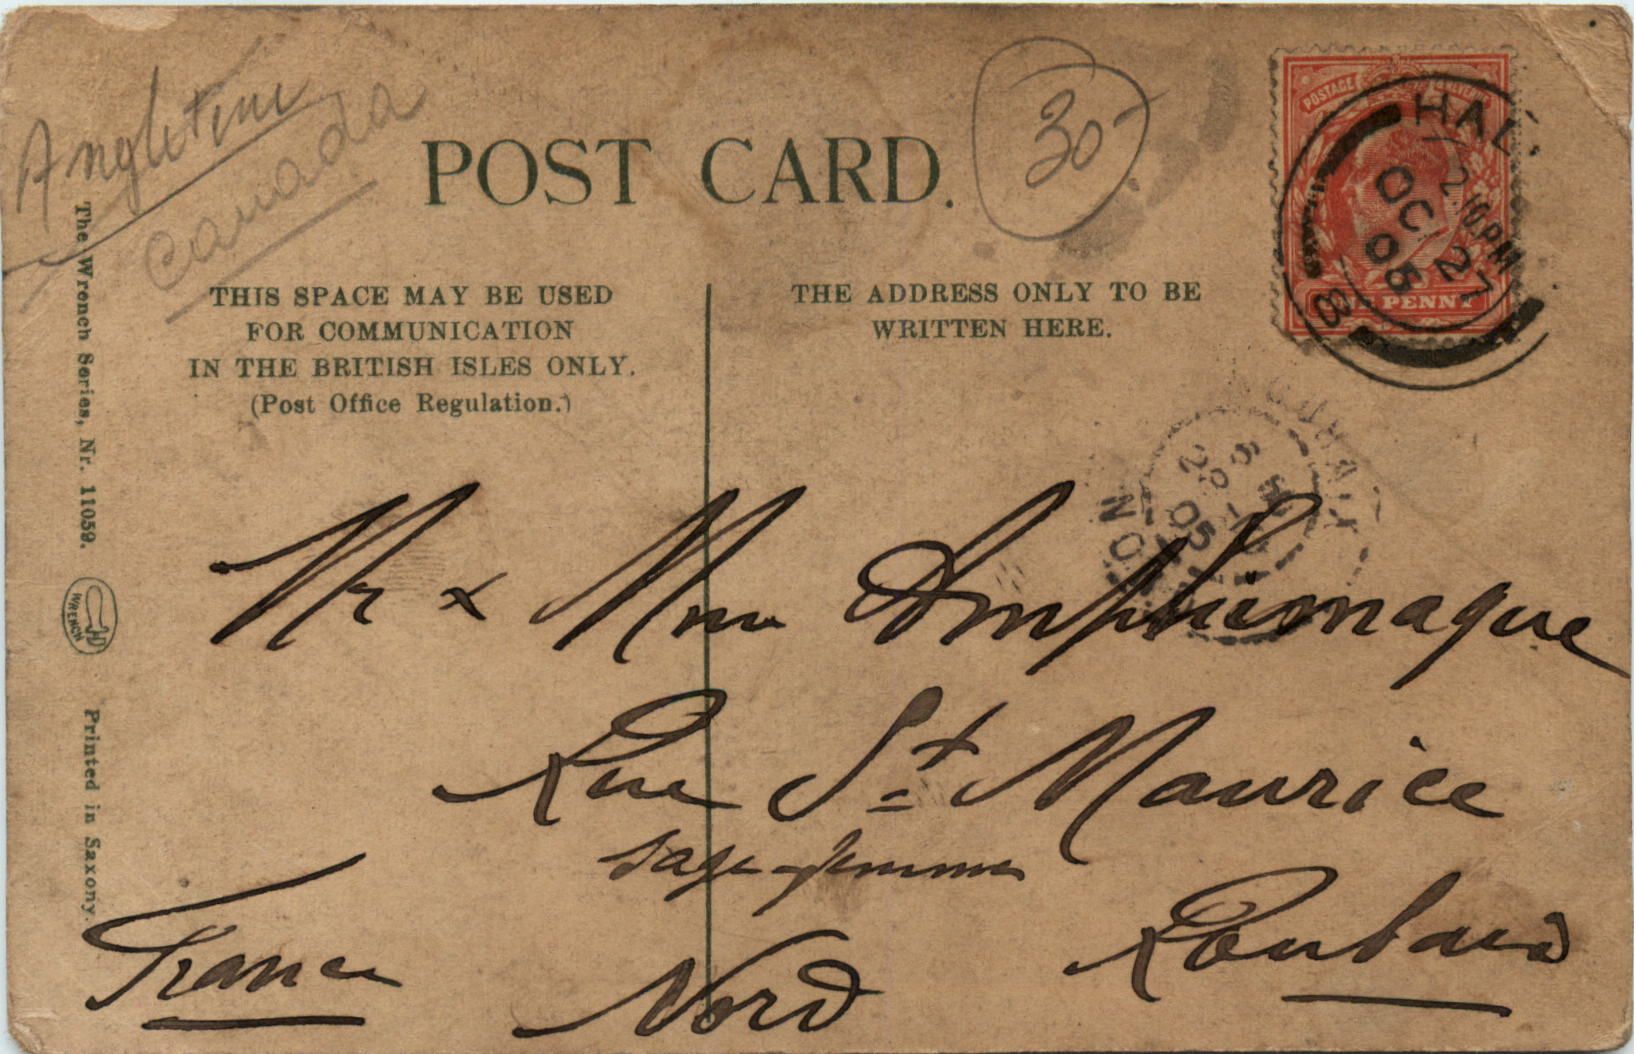 Angleterre
Canada
POST CARD.
30-
POSTAGE REVENUE
ONE PENNY
HAL
2.10.PM
OC 27
05
B
THIS SPACE MAY BE USED
FOR COMMUNICATION
IN THE BRITISH ISLES ONLY.
(Post Office Regulation.)
THE ADDRESS ONLY TO BE
WRITTEN HERE.
The Wrench Series, Nr. 11059.
WRENCH
Printed in Saxony.
ROUBAIX
28
05
NORD
Mr & Mme
Rue St Maurice
sage-femme
Roubaix
France
Nord